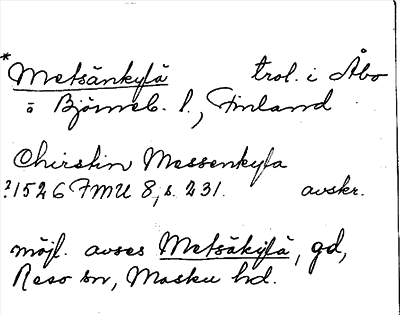 *Metsänkylä trol. i Åbo
o Björneb. l., Finland
Chirstin Messenkyla
?1526 FMU 8, s. 231. avskr.
möjl. avses Metsäkylä, gd,
Reso sn, Masku hd.